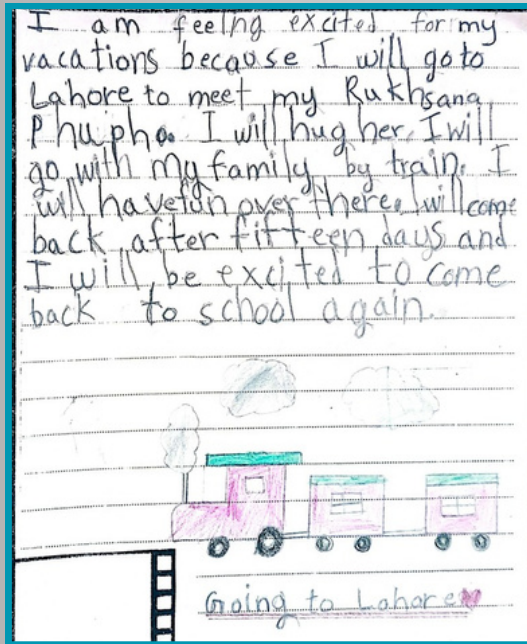 I am feelng excited for my
vacations because I will go to
Lahore to meet my Rukhsana
Phupho. I will hug her. I will
go with my family by train. I
will have fun over there. I will come
back after fifteen days and
I will be excited to come
back to school again.
Going to Lahore